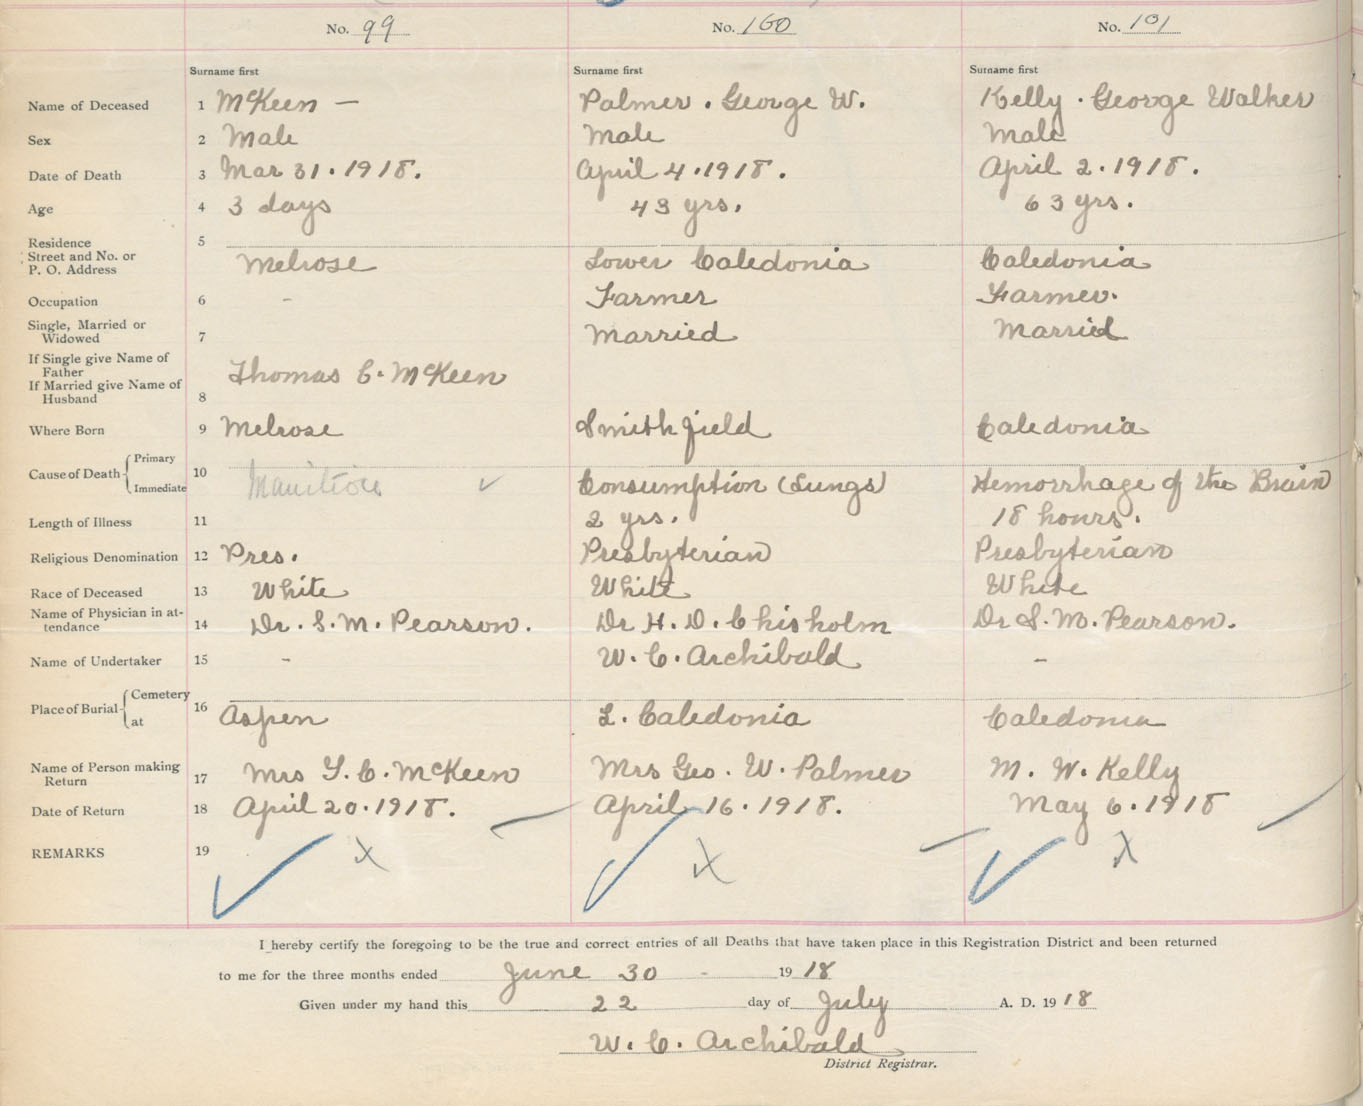 No. 99 No. 100 No. 101
Surname first Surname first Surname first
Name of Deceased 1 McKeen — Palmer . George W. Kelly . George Walker
Sex 2 Male Male Male
Date of Death 3 Mar 31 . 1918. April 4 . 1918. April 2 . 1918.
Age 4 3 days 43 yrs. 63 yrs.
Residence 5
Street and No. or
P. O. Address Melrose Lower Caledonia Caledonia
Occupation 6 - Farmer Farmer.
Single, Married or
Widowed 7 Married Married
If Single give Name of
Father Thomas C. McKeen
If Married give Name of
Husband 8
Where Born 9 Melrose Smithfield Caledonia
Cause of Death { Primary 10
Immediate Consumption (Lungs) Hemorrhage of the Brain
Length of Illness 11 2 yrs. 18 hours.
Religious Denomination 12 Pres. Presbyterian Presbyterian
Race of Deceased 13 White White White
Name of Physician in at-
tendance 14 Dr. S. M. Pearson. Dr H. D. Chisholm Dr S. M. Pearson.
Name of Undertaker 15 - W. C. Archibald -
Place of Burial { Cemetery 16
at Aspen L. Caledonia Caledonia
Name of Person making
Return 17 Mrs T. C. McKeen Mrs Geo. W. Palmer M. W. Kelly
Date of Return 18 April 20 . 1918. April 16 . 1918. May 6 . 1918
REMARKS 19 X X X
I hereby certify the foregoing to be the true and correct entries of all Deaths that have taken place in this Registration District and been returned
to me for the three months ended June 30 - 1918
Given under my hand this 22 day of July A. D. 1918
W. C. Archibald
District Registrar.